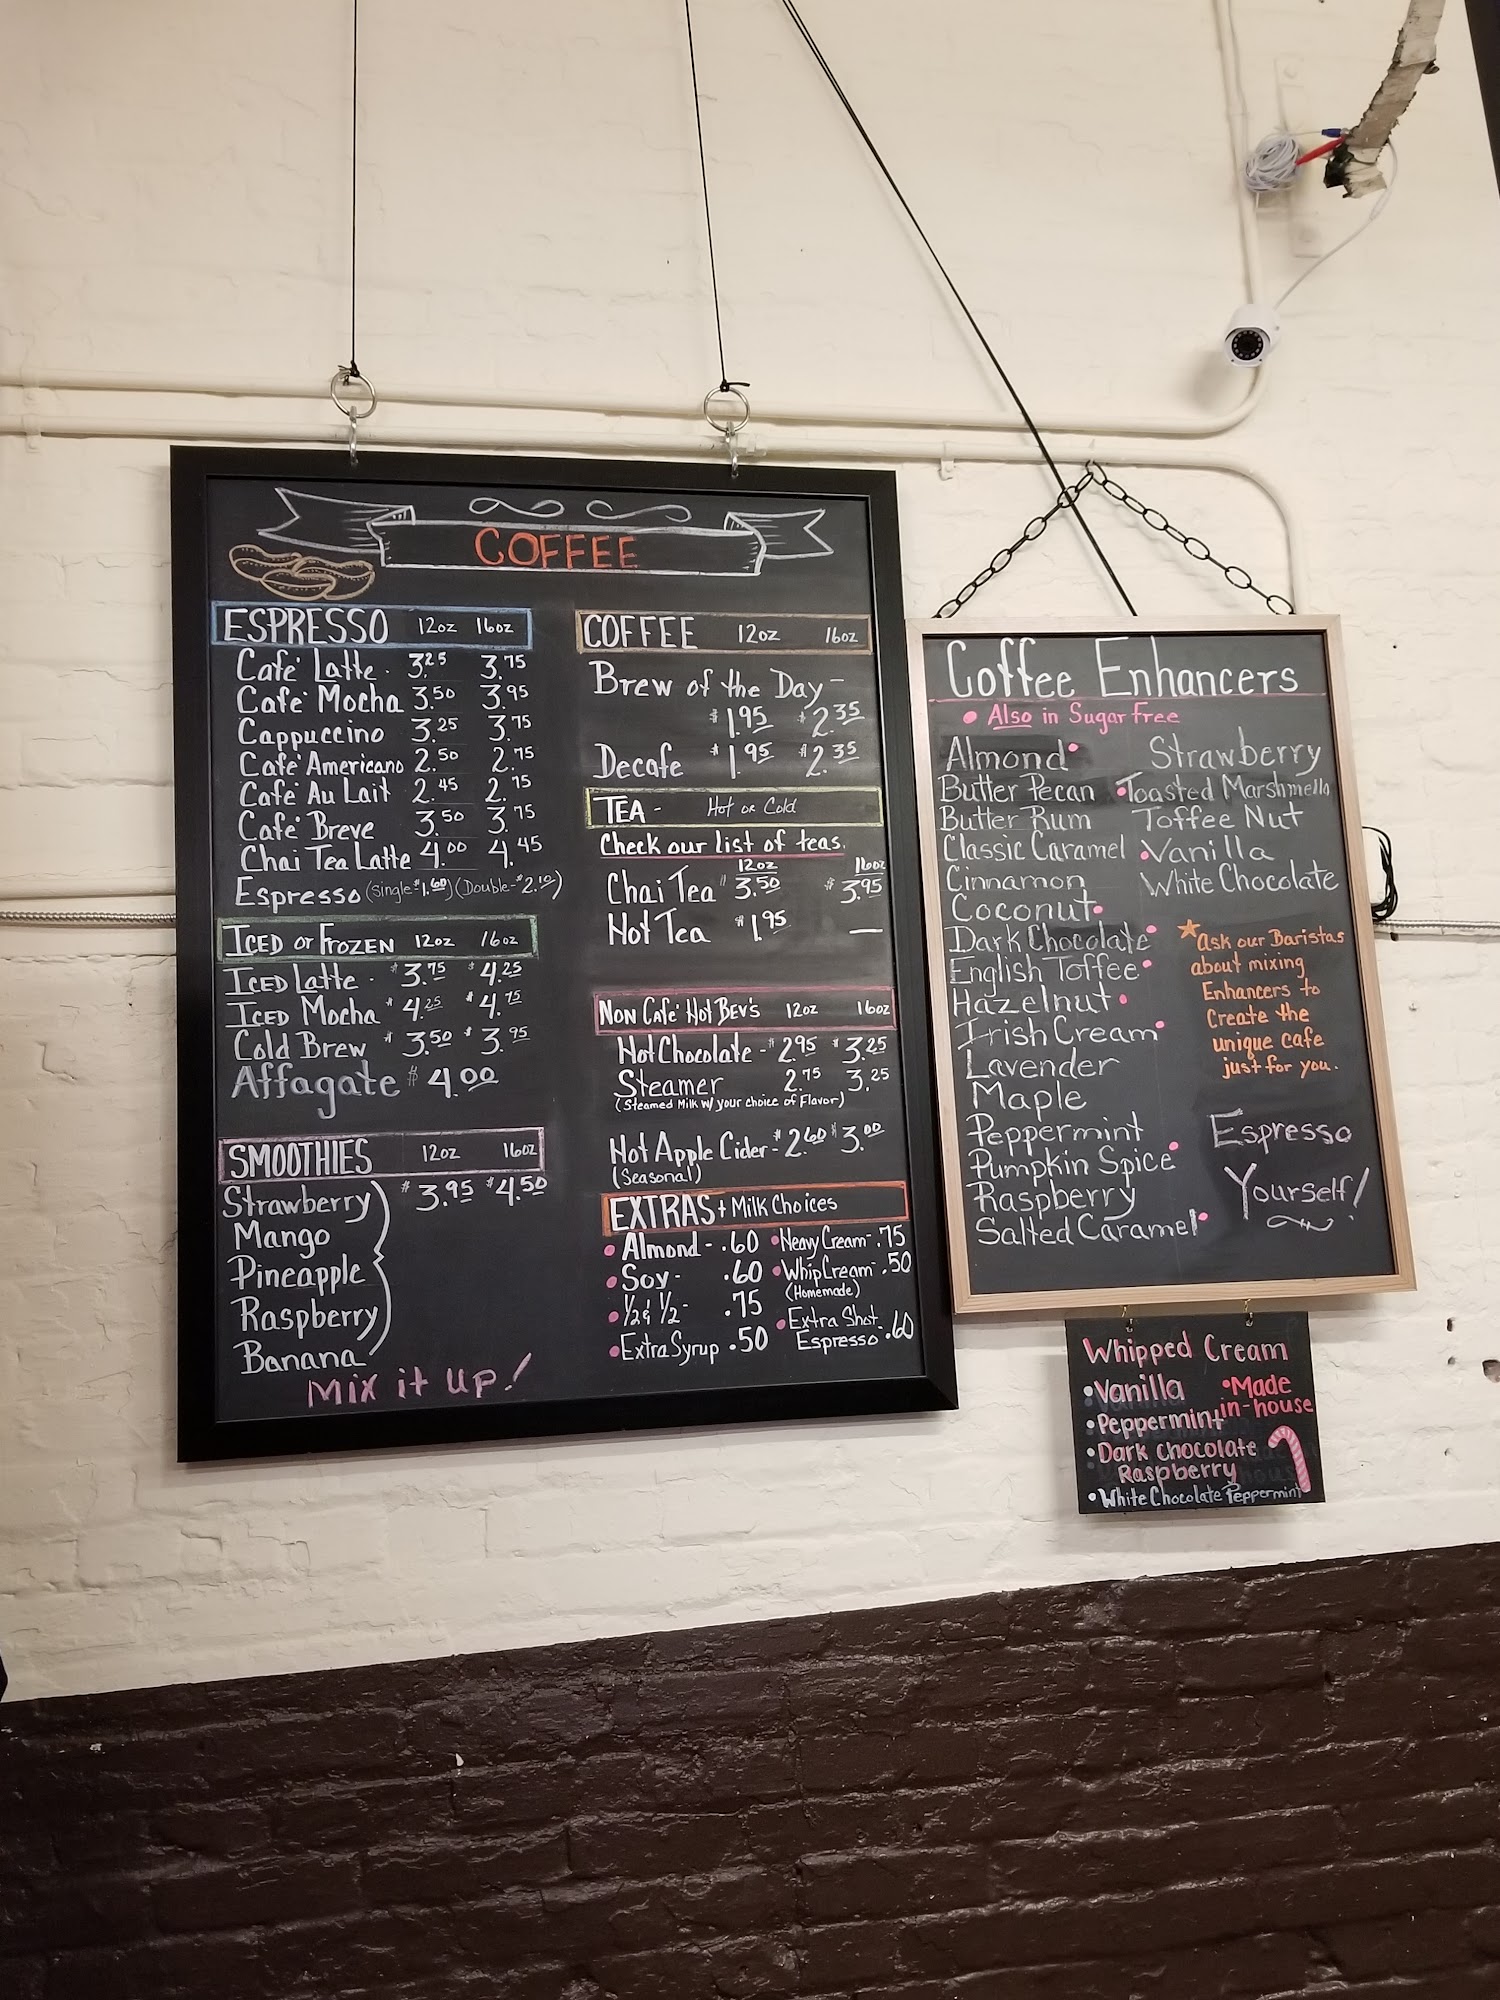 COFFEE
ESPRESSO 12oz 16oz
Café Latte - 3.25 3.75
Café Mocha 3.50 3.95
Cappuccino 3.25 3.75
Café Americano 2.50 2.75
Café Au Lait 2.45 2.75
Café Breve 3.50 3.75
Chai Tea Latte 4.00 4.45
Espresso (Single-$1.60) (Double-$2.10)
ICED or FROZEN 12oz 16oz
ICED Latte - $3.75 $4.25
ICED Mocha $4.25 $4.75
Cold Brew $3.50 $3.95
Affagate $4.00
SMOOTHIES 12oz 16oz
Strawberry $3.95 $4.50
Mango
Pineapple
Raspberry
Banana
Mix it up!
COFFEE 12oz 16oz
Brew of the Day -
$1.95 $2.35
Decafe $1.95 $2.35
TEA - Hot or Cold
Check our list of teas.
12oz 16oz
Chai Tea $3.50 $3.95
Hot Tea $1.95 —
NON Café Hot Bev's 12oz 16oz
Hot Chocolate - $2.95 $3.25
Steamer 2.75 3.25
(Steamed Milk w/ your choice of Flavor)
Hot Apple Cider - $2.60 $3.00
(Seasonal)
EXTRAS + Milk Choices
• Almond - .60 • Heavy Cream - .75
• Soy - .60 • Whip Cream - .50
(Homemade)
• ½ & ½ - .75 • Extra Shot
• Extra Syrup .50 Espresso - .60
Coffee Enhancers
• Also in Sugar Free
Almond •
Butter Pecan
Butter Rum
Classic Caramel
Cinnamon
Coconut •
Dark Chocolate •
English Toffee •
Hazelnut •
Irish Cream •
Lavender
Maple
Peppermint
Pumpkin Spice •
Raspberry
Salted Caramel •
Strawberry
• Toasted Marshmello
Toffee Nut
• Vanilla
White Chocolate
* Ask our Baristas
about mixing
Enhancers to
Create the
unique cafe
just for you.
Espresso
Yourself!
Whipped Cream
• Vanilla
• Peppermint
• Dark chocolate
Raspberry
• White Chocolate Peppermint
• Made
in-house